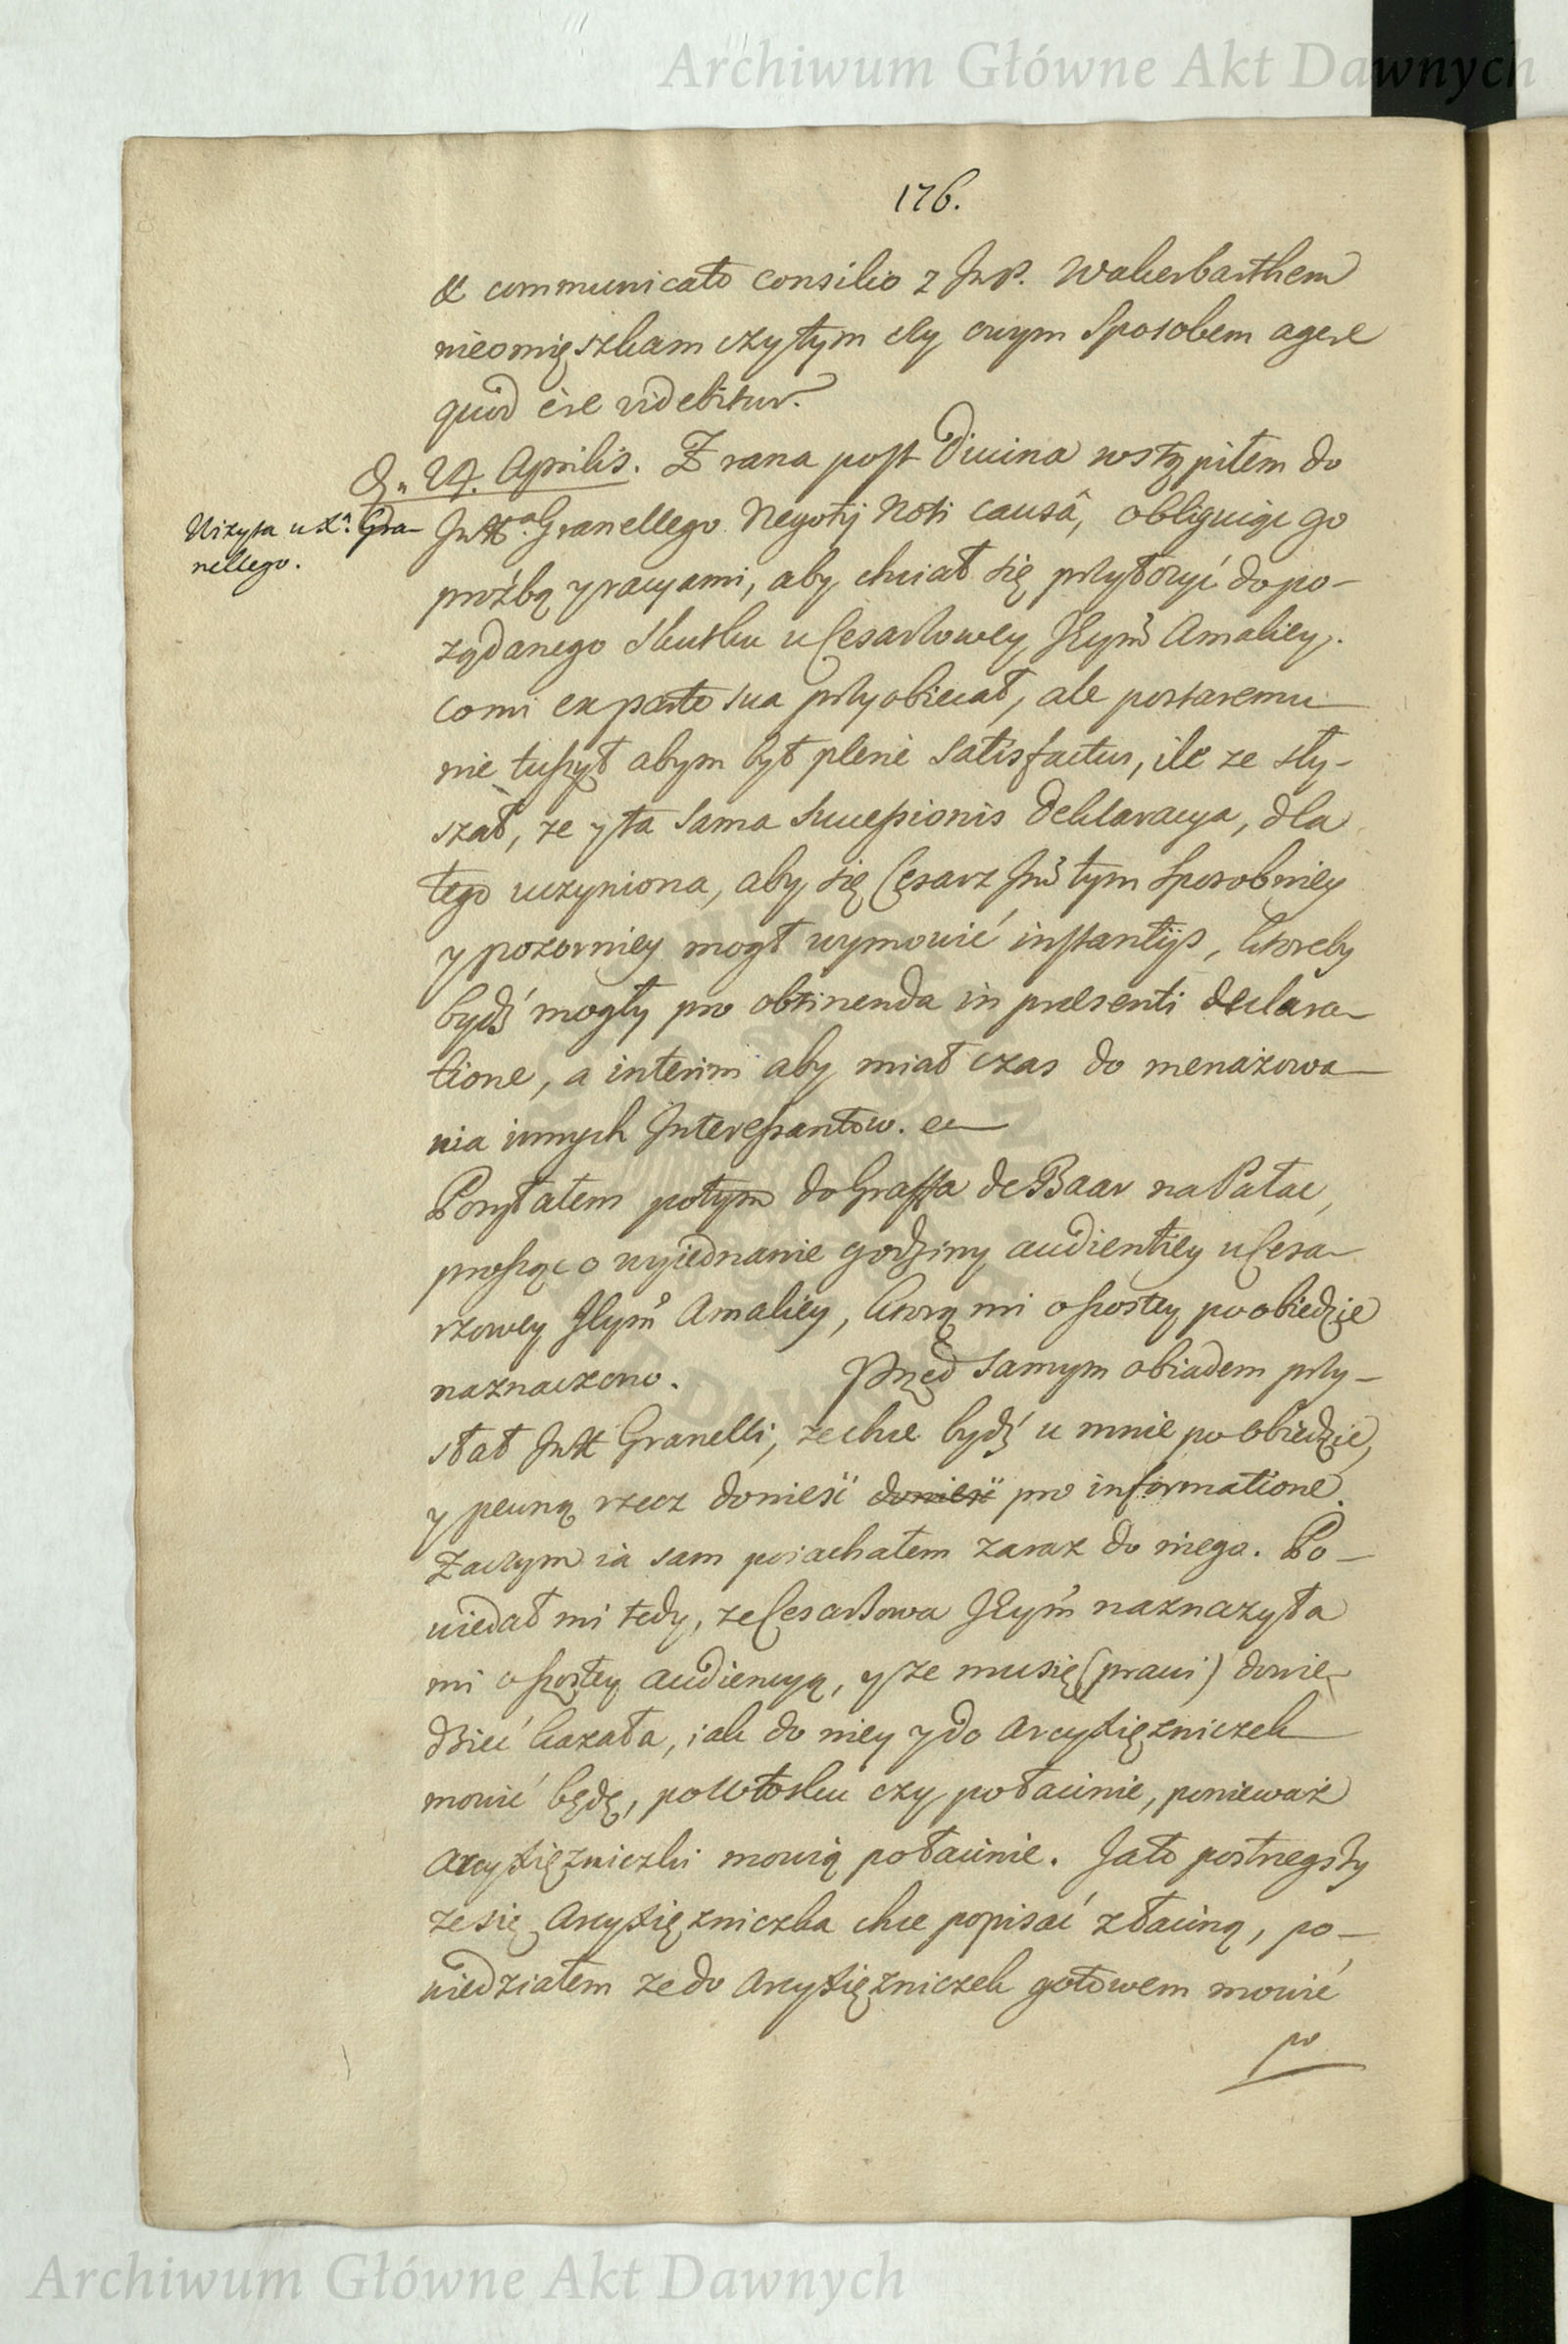 Archiwum Główne Akt Dawnych
176.
& communicato consilio z JmP. Wakerbarthem
nieomięszkam czytym czy owym sposobem agere
quid è re videbitur.
D. 24. Aprilis. Z rana post Divina wstąpiłem do
Wizyta u X. Gra-
nellego.
JmX. Granellego Negotij Noti causâ, obliguiąc go
proźbą y racyami, aby chciał się przyłożyć do po-
ządanego skutku u Cesarzowey JEym Amaliey.
co mi ex parte sua przyobiecał, ale postaremu
nie tuszył abym był plenè satisfactus, ile ze sły-
szał, ze y ta sama successionis deklaracya, dla
tego uczyniona, aby się Cesarz Jm tym sposobniey
y pozorniey mogł wymowić instantijs, ktoreby
bydź mogły pro obtinenda in praesenti declara-
tione, a interim aby miał czas do menażowa-
nia innych Interessantow. etc
Posyłałem potym do Graffa de Baar na Pałac,
prosząc o wyiednanie godziny audientiey u Cesa-
rzowey JEym Amaliey, ktorą mi o szostey po obiedzie
naznaczono. Przed samym obiadem przy-
słał JmX Granelli, ze chce bydź u mnie po obiedzie,
y pewną rzecz donieść donieść pro informatione.
Zaczym ia sam poiachałem zaraz do niego. Po-
wiedał mi tedy, ze Cesarzowa JEym naznaczyła
mi o szostey audiencyą, y ze mu się (prawi) dowie-
dzieć kazała, iak do niey y do Arcyxiężniczek
mowić będę, po Włosku czy po łacinie, ponieważ
Arcyxiężniczki mowią po łacinie. Ja to postrzegszy
ze się Arcyxiężniczka chce popisać z łaciną, po-
wiedziałem ze do Arcyxiężniczek gotowem mowić
po
Archiwum Główne Akt Dawnych